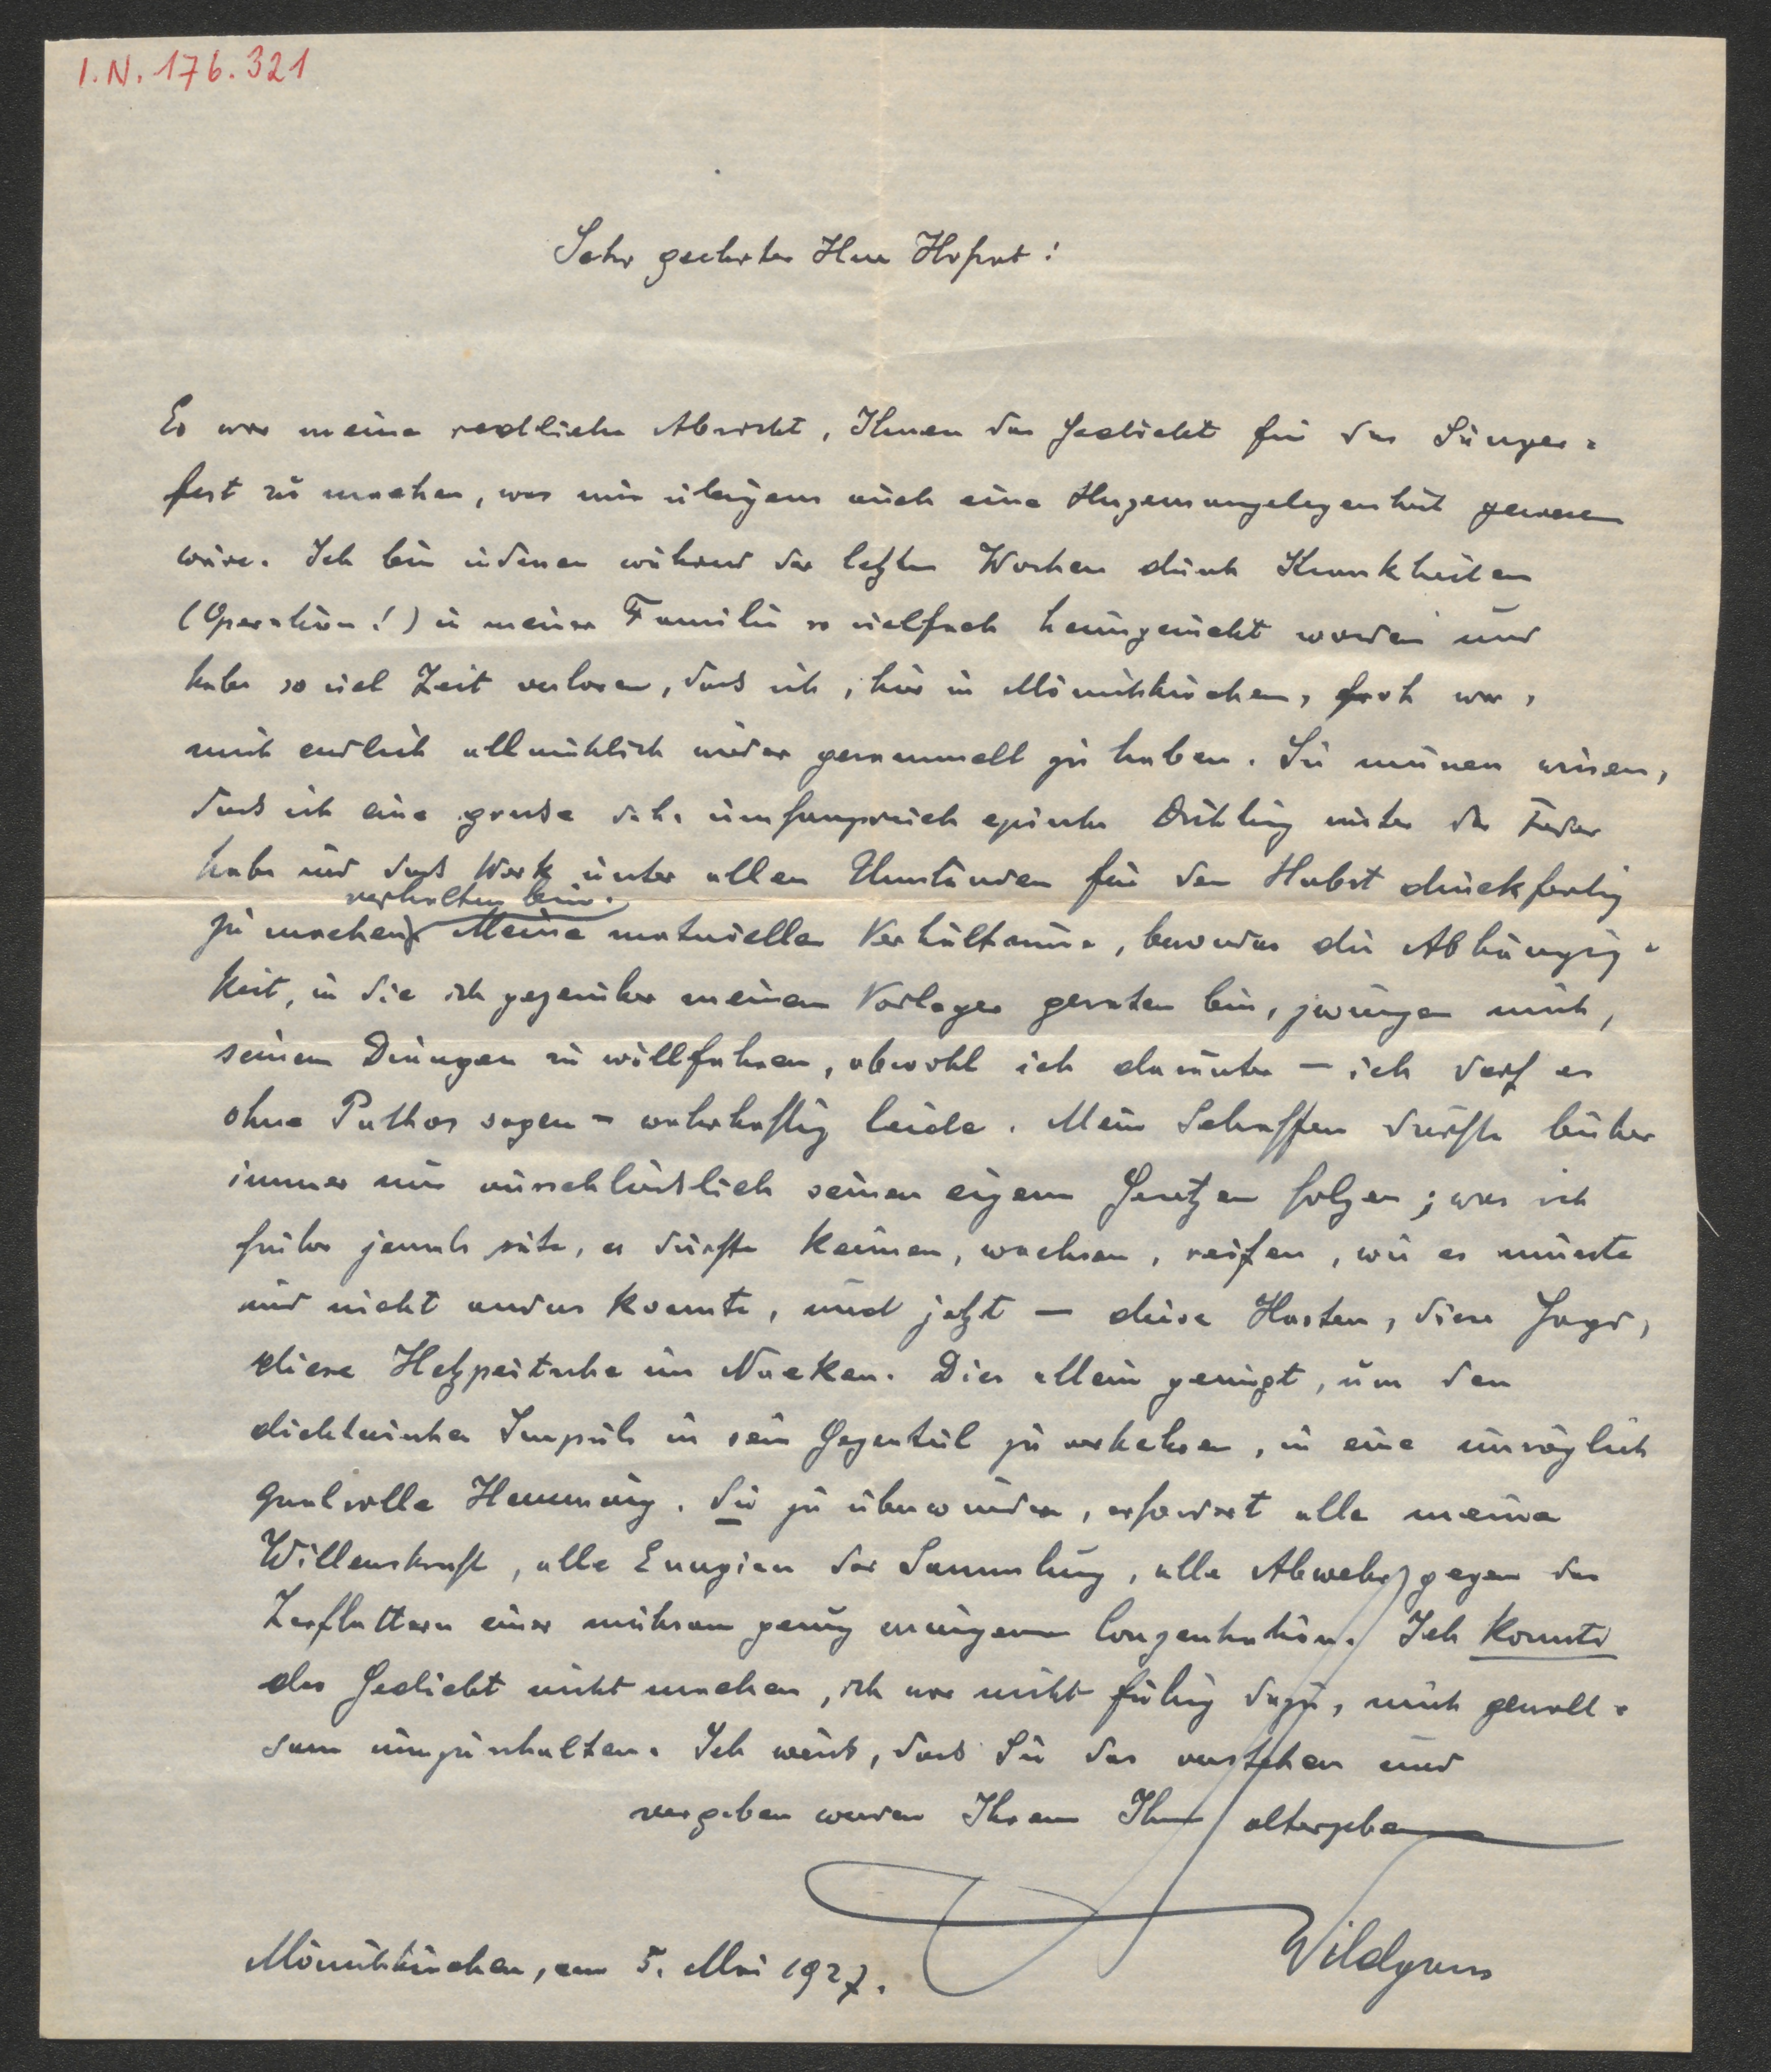 I.N. 176.321
Sehr geehrter Herr Hofrat!
Es war meine redliche Absicht, Ihnen das Gedicht für das Sänger=
fest zu machen, was mir übrigens auch eine Herzensangelegenheit gewesen
wäre. Ich bin indessen während der letzten Wochen durch Krankheiten
(Operation!) in meiner Familie so vielfach heimgesucht worden und
habe so viel Zeit verloren, dass ich, hier in Mönichkirchen, froh war,
mich endlich allmählich wieder gesammelt zu haben. Sie müssen wissen,
dass ich eine grosse d. h. umfangreich epische Dichtung unter der Feder
habe und das Werk unter allen Umständen für den Herbst druckfertig
verhalten bin.
zu machen Meine materiellen Verhältnisse, besonders die Abhängig=
keit, in die ich gegenüber meinem Verleger geraten bin, zwingen mich,
seinem Drängen zu willfahren, obwohl ich darunter – ich darf es
ohne Pathos sagen – wahrhaftig leide. Mein Schaffen durfte bisher
immer nur ausschliesslich seinen eigenen Gesetzen folgen; was ich
früher jemals säte, es durfte keimen, wachsen, reifen, wie es musste
und nicht anders konnte, und jetzt – dieses Hasten, diese Jagd,
diese Hetzpeitsche im Nacken. Dies allein genügt, um den
dichterischen Impuls in sein Gegenteil zu verkehren, in eine unsäglich
qualvolle Hemmung. Sie zu überwinden, erfordert alle meine
Willenskraft, alle Energien der Sammlung, alle Abwehr gegen das
Zerflattern einer mühsam genug errungenen Conzentration. Ich konnte
das Gedicht nicht machen, ich war nicht fähig dazu, mich gewalt=
sam umzuschalten. Ich weiss, dass Sie das verstehen und
vergeben werden Ihrem Ihnen altergebenen
Wildgans
Mönichkirchen, am 5. Mai 1927.